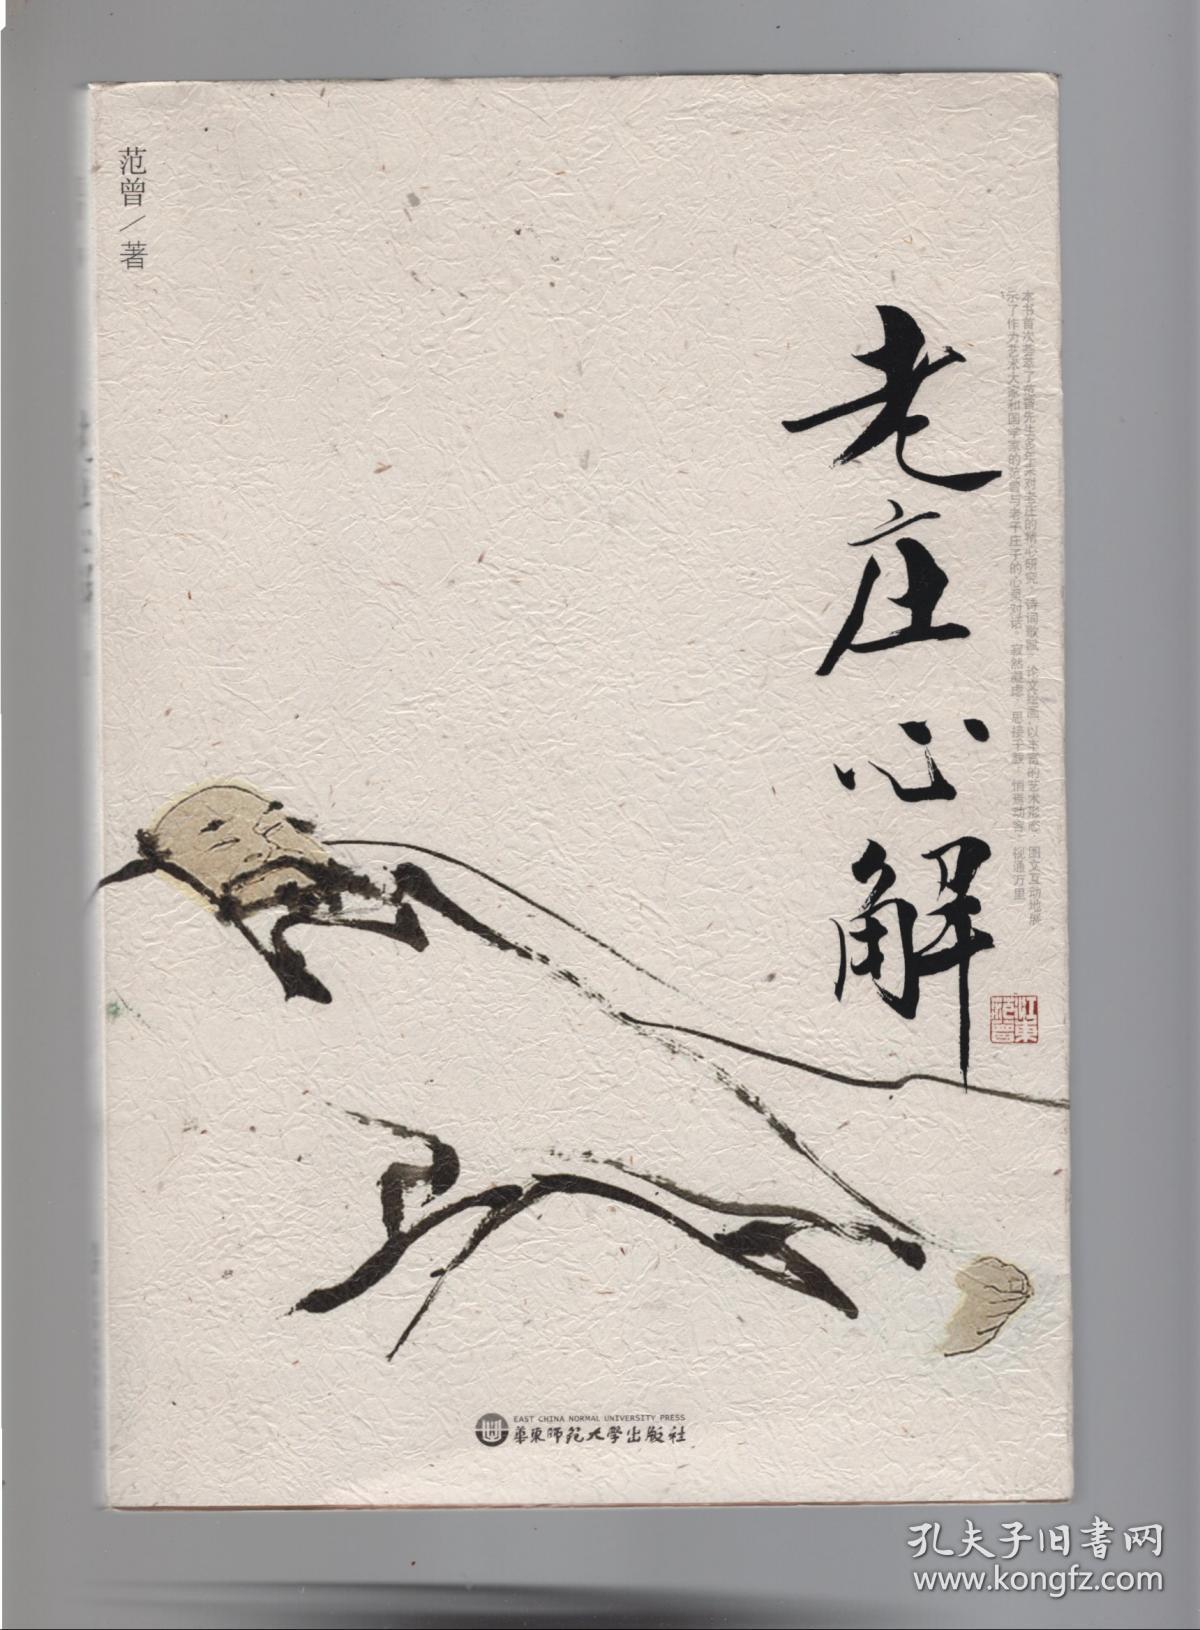 范曾／著
老庄心解
本书首次荟萃了范曾先生多年来对老庄的精心研究，诗词歌赋，论文绘画，以丰富的艺术形态，图文互动地展
示了作为艺术大家和国学家的范曾与老子庄子的心灵对话。寂然凝虑，思接千载，悄焉动容，视通万里。
江東范曾
EAST CHINA NORMAL UNIVERSITY PRESS
華東师范大学出版社
孔夫子旧书网
www.kongfz.com